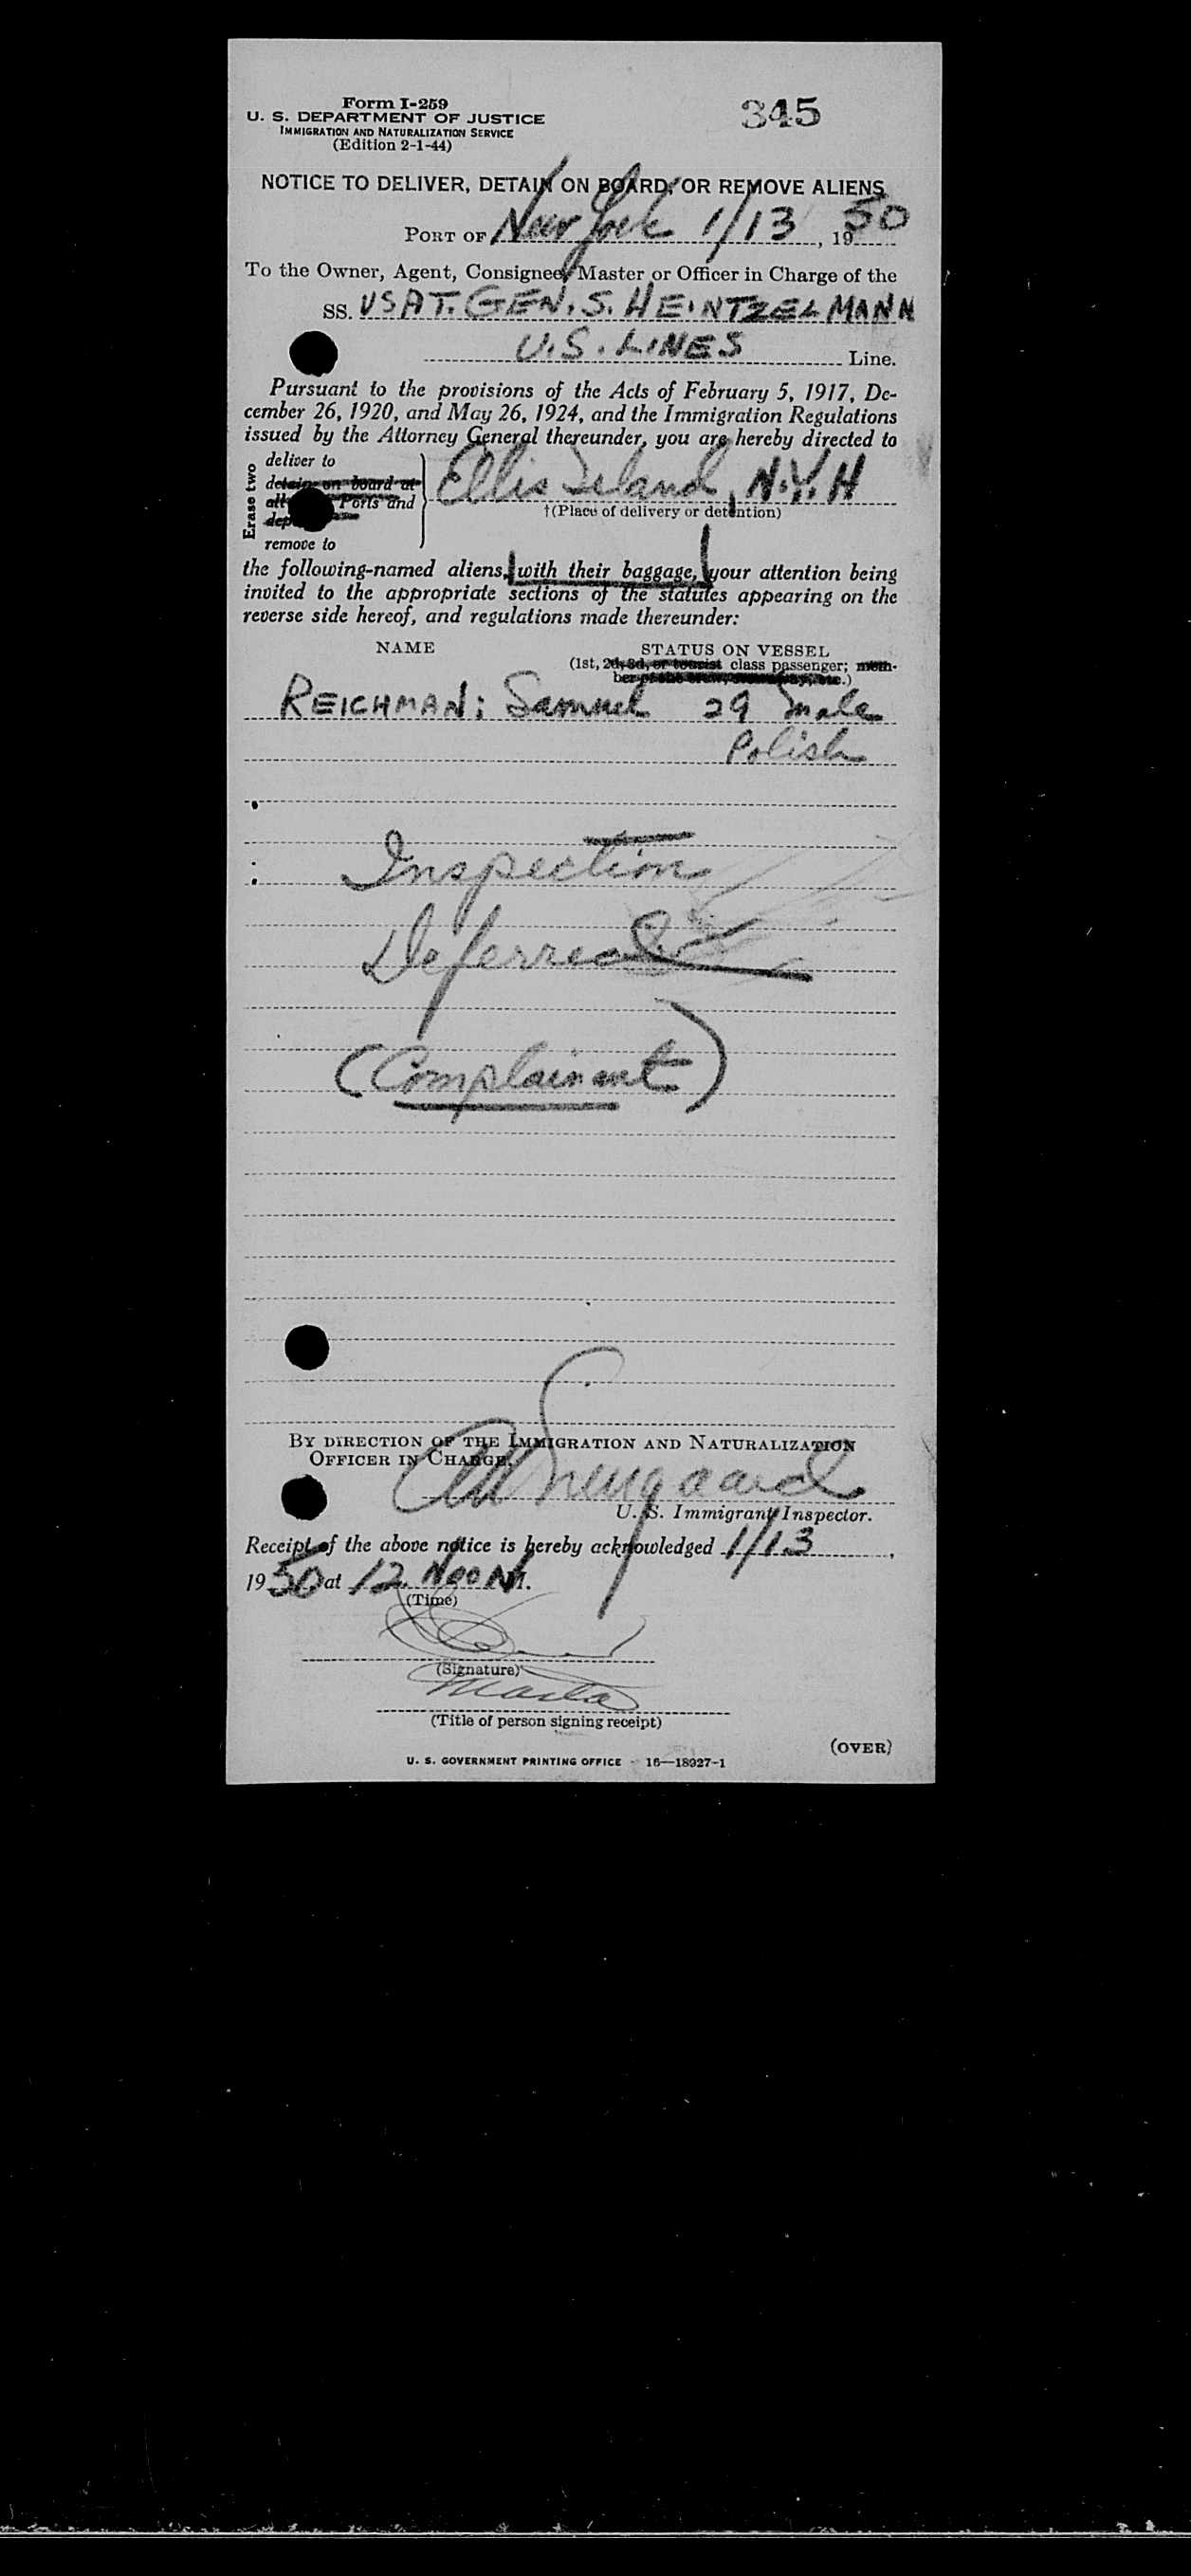 Form I-259
U. S. DEPARTMENT OF JUSTICE
IMMIGRATION AND NATURALIZATION SERVICE
(Edition 2-1-44)
345
NOTICE TO DELIVER, DETAIN ON BOARD, OR REMOVE ALIENS
PORT OF New York 1/13, 1950
To the Owner, Agent, Consignee, Master or Officer in Charge of the
SS. USAT. GEN. S. HEINTZELMANN
U.S. LINES Line.
Pursuant to the provisions of the Acts of February 5, 1917, De-
cember 26, 1920, and May 26, 1924, and the Immigration Regulations
issued by the Attorney General thereunder, you are hereby directed to
Erase two
deliver to
detain on board at
all Ports and
dep
remove to
Ellis Island, N.Y.H
†(Place of delivery or detention)
the following-named aliens, with their baggage, your attention being
invited to the appropriate sections of the statutes appearing on the
reverse side hereof, and regulations made thereunder:
NAME STATUS ON VESSEL
(1st, 2d, 3d, or tourist class passenger; mem-
ber of the crew, etc.)
REICHMAN; Samuel 29 male
Polish
Inspection
Deferred
(Complainant)
BY DIRECTION OF THE IMMIGRATION AND NATURALIZATION
OFFICER IN CHARGE.
U. S. Immigrant Inspector.
Receipt of the above notice is hereby acknowledged 1/13,
1950 at 12 Noon M.
(Time)
(Signature)
(Title of person signing receipt)
(OVER)
U. S. GOVERNMENT PRINTING OFFICE 16—18927-1